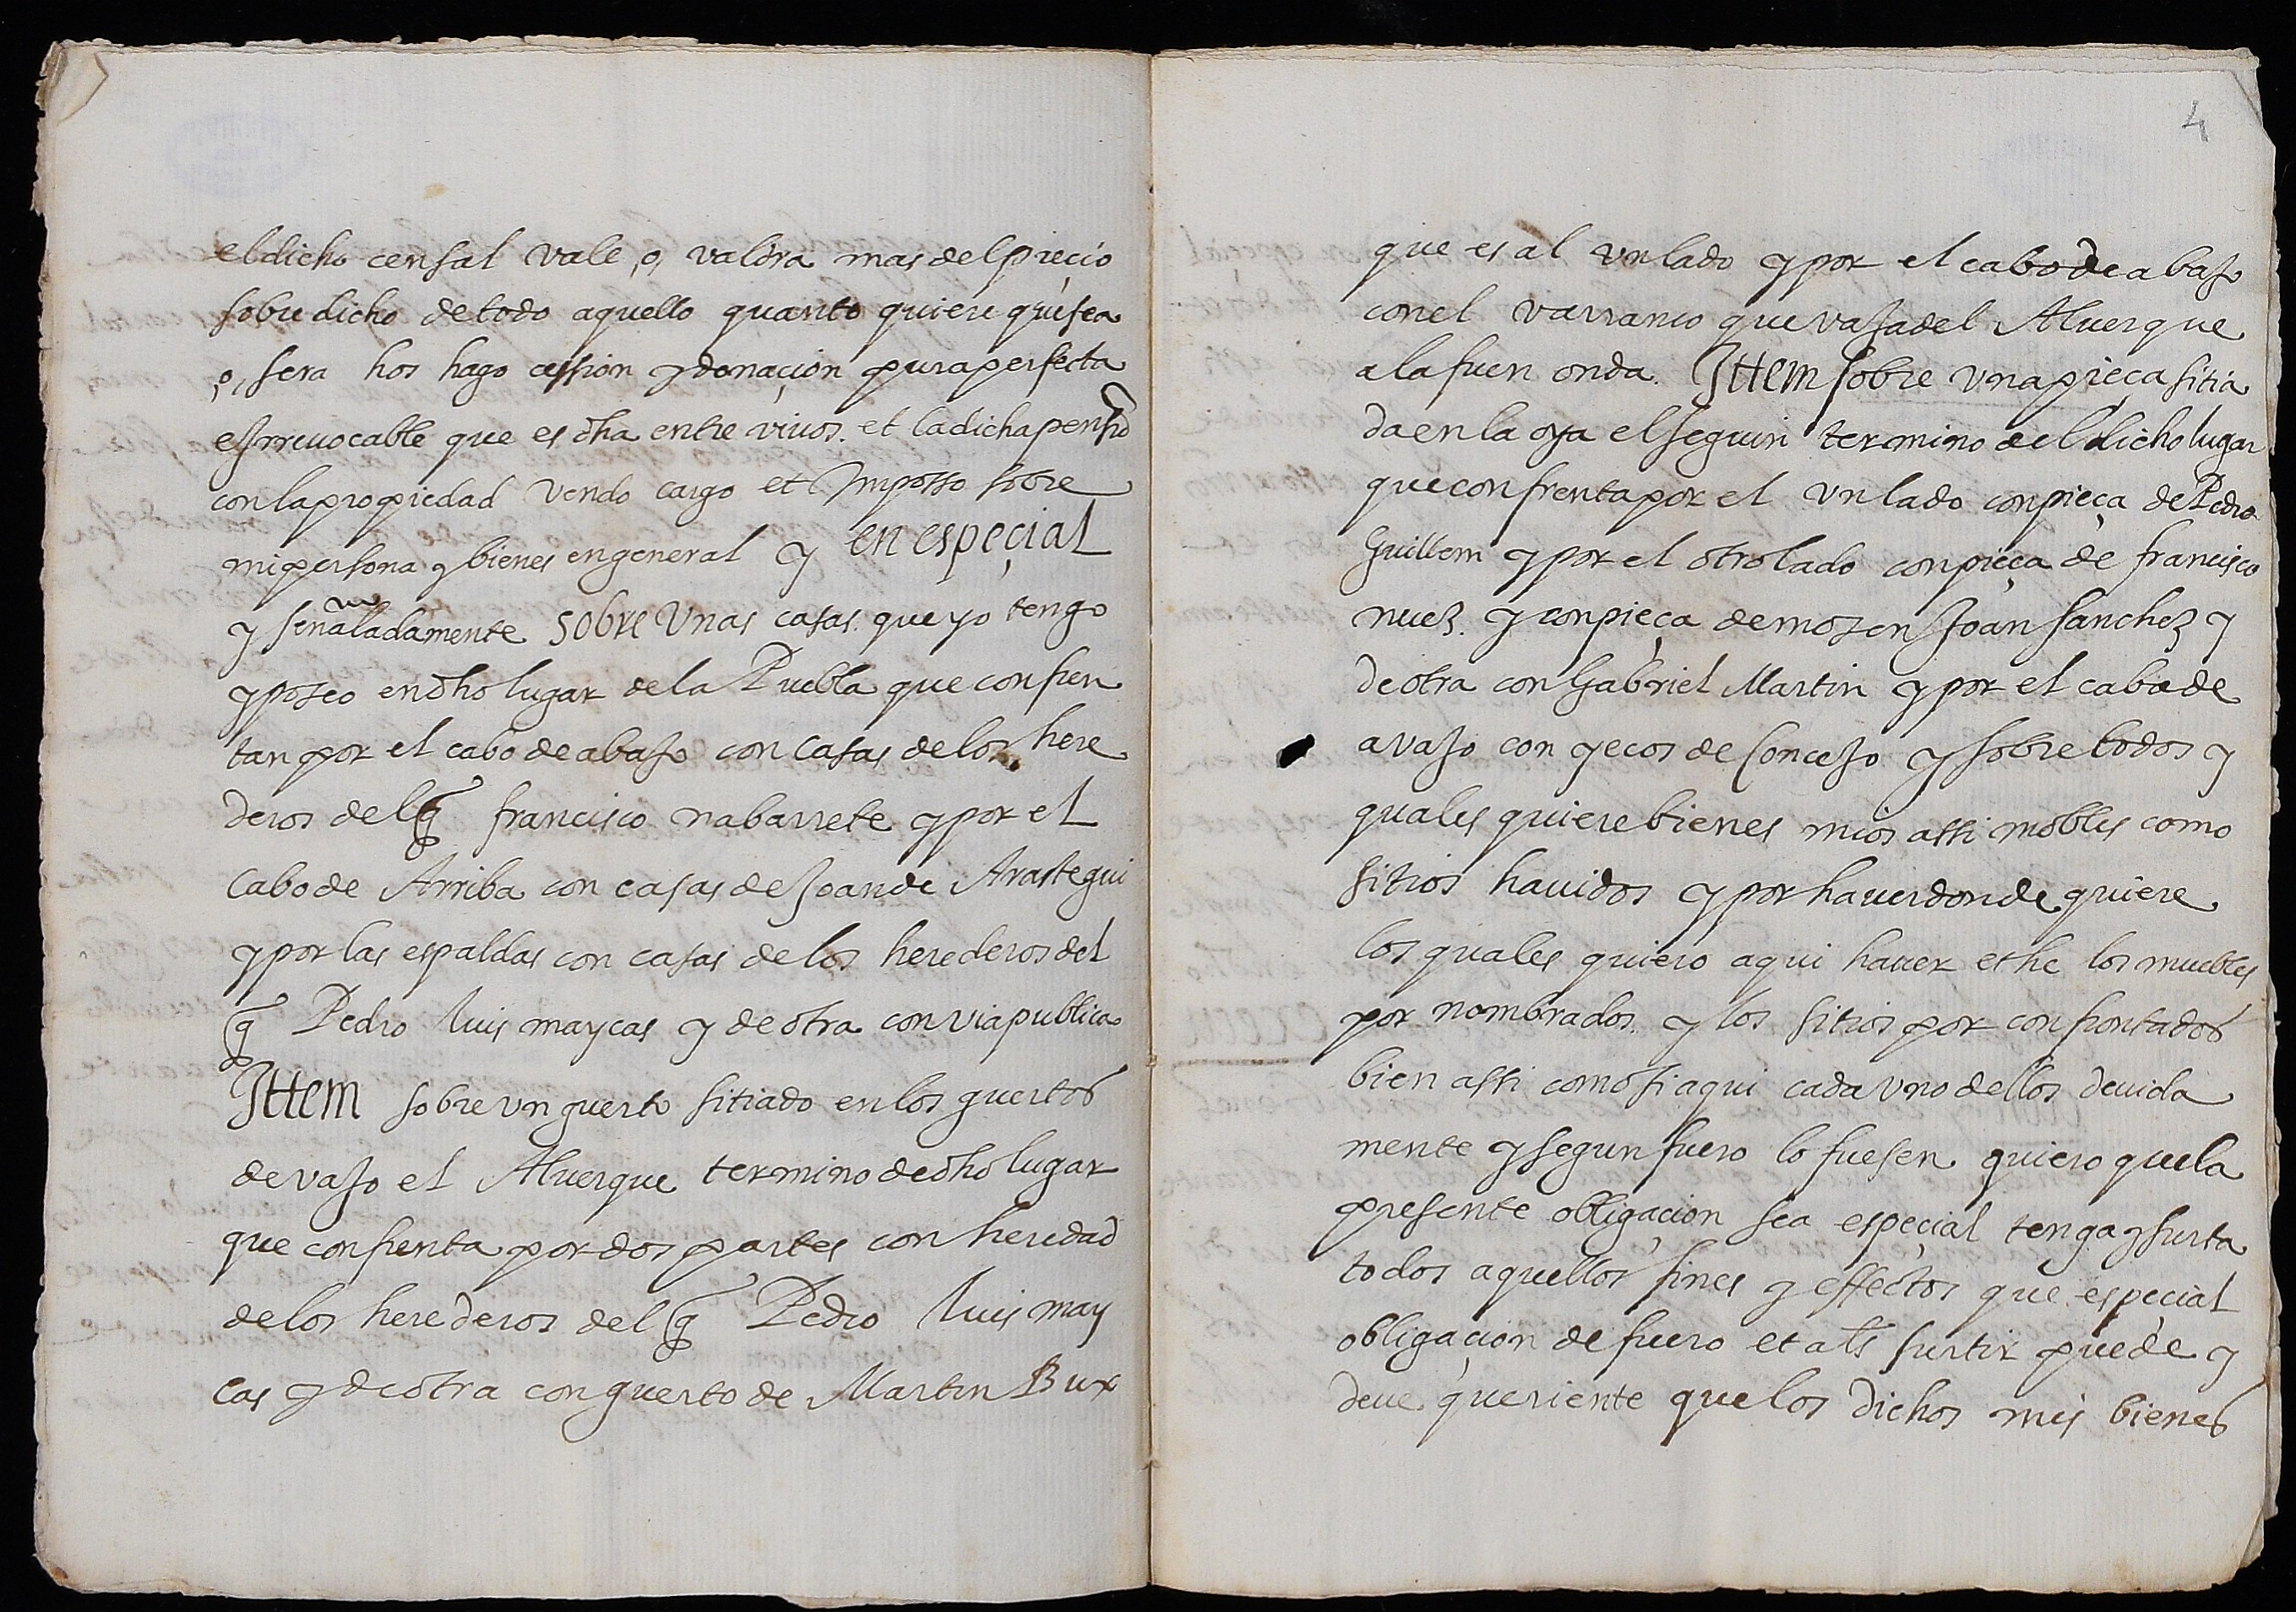 el dicho censal vale, o, valdra mas del precio
sobredicho de todo aquello quanto quiere que sea
,o, sera hos hago cession y donaçion pura perfecta
e Jrreuocable que es dha entre viuos. et la dicha pensio
con la propiedad vendo cargo et Jmposso sobre
mi persona y bienes en general y en espeçial
y señaladamente sobre Vnas casas que yo tengo
y poseo en dho lugar de la Puebla que confren
tan por el cabo de abaJo con casas de los here
deros del q francisco nabarrete y por el
cabo de Arriba con casas de Joan de Arastegui
y por las espaldas con casas de los herederos del
q Pedro luis maycas y de otra con via publica
Jttem sobre vn guerto sitiado en los guertos
de vaJo el Aluerque termino de dho lugar
que confrenta por dos partes con heredad
de los herederos del q Pedro luis may
cas y de otra con guerto de Martin Bux
4
que es al vn lado y por el cabo de abaJo
con el varranco que vaJa del Aluerque
a la fuen onda. Jttem sobre vna pieça sitia
da en la oya el seguin termino del dicho lugar
que confrenta por el vn lado con pieça de Pedro
Guillem y por el otro lado con pieça de francisco
nuez. y con pieça de mosen Joan sanchez y
de otra con Gabriel Martin y por el cabo de
avaJo con yecos de ConceJo y sobre todos y
quales quiere bienes mios assi mobles como
sitios hauidos y por hauer donde quiere
los quales quiero aqui hauer et he los muebles
por nombrados. y los sitios por confrontados
bien assi como si aqui cada vno dellos deuida
mente y segun fuero lo fuesen quiero que la
presente obligaçion sea espeçial tenga y surta
todos aquellos fines y effectos que espeçial
obligaçion de fuero et als surtir puede y
deue queriente que los dichos mis bienes